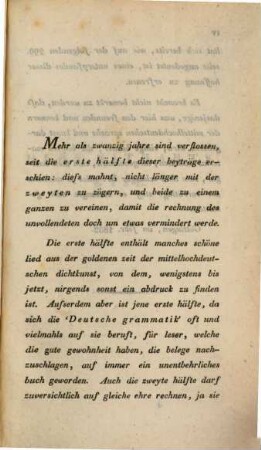 Mehr als zwanzig jahre sind verflossen,
seit die erste hälfte dieser beyträge er-
schien: diefs mahnt, nicht länger mit der
zweyten zu zögern, und beide zu einem
ganzen zu vereinen, damit die rechnung des
unvollendeten doch um etwas vermindert werde.
Die erste hälfte enthält manches schöne
lied aus der goldenen zeit der mittelhochdeut-
schen dichtkunst, von dem, wenigstens bis
jetzt, nirgends sonst ein abdruck zu finden
ist. Aufserdem aber ist jene erste hälfte, da
sich die 'Deutsche grammatik' oft und
vielmahls auf sie beruft, für leser, welche
die gute gewohnheit haben, die belege nach-
zuschlagen, auf immer ein unentbehrliches
buch geworden. Auch die zweyte hälfte darf
zuversichtlich auf gleiche ehre rechnen, ja sie